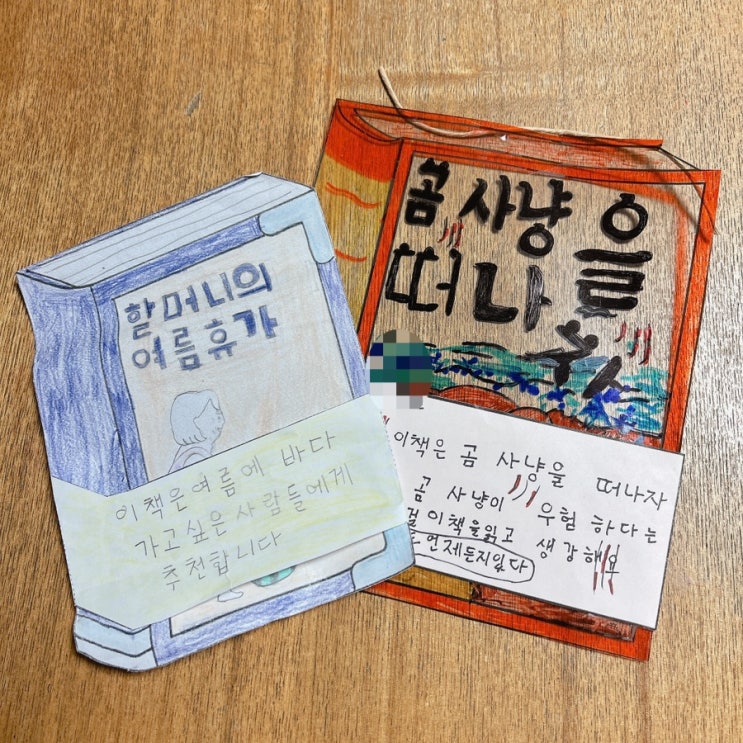 할머니의
여름휴가
이책은여름에 바다
가고싶은사람들에게
추천합니다
곰 사냥을
떠나
이책은 곰 사냥을 떠나자
곰 사냥이 우험 하다는
걸 이책을읽고 생강해보
언제든지있다